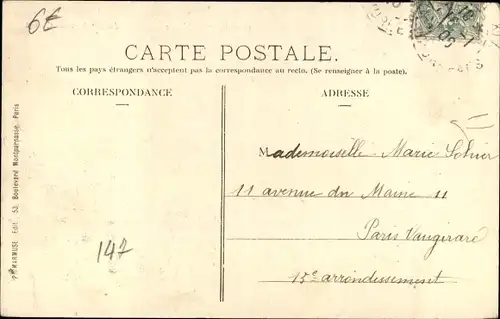 6€
CARTE POSTALE.
Tous les pays étrangers n'acceptent pas la correspondance au recto. (Se renseigner à la poste).
CORRESPONDANCE
ADRESSE
Mademoiselle Marie
11 avenue du Maine 11
Paris Vaugirard
15e arrondissement
147
MARMUSE Edit. 53, Boulevard Montparnasse, Paris